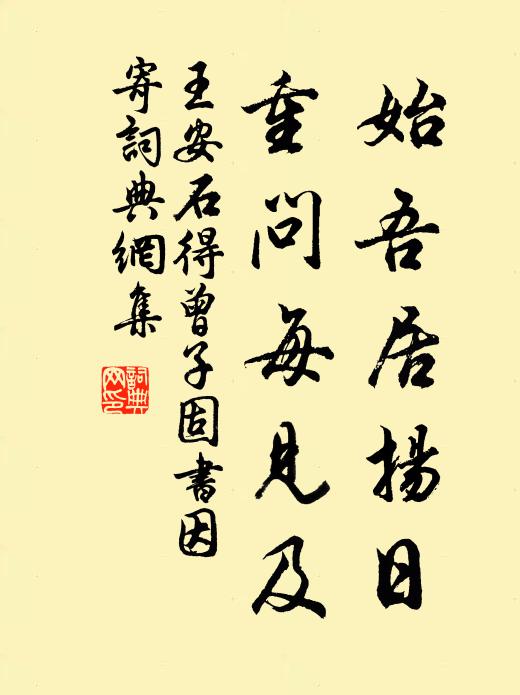 始吾居揚日
重問每見及
王安石得曾子固書因
寄詞典網集
詞典網印